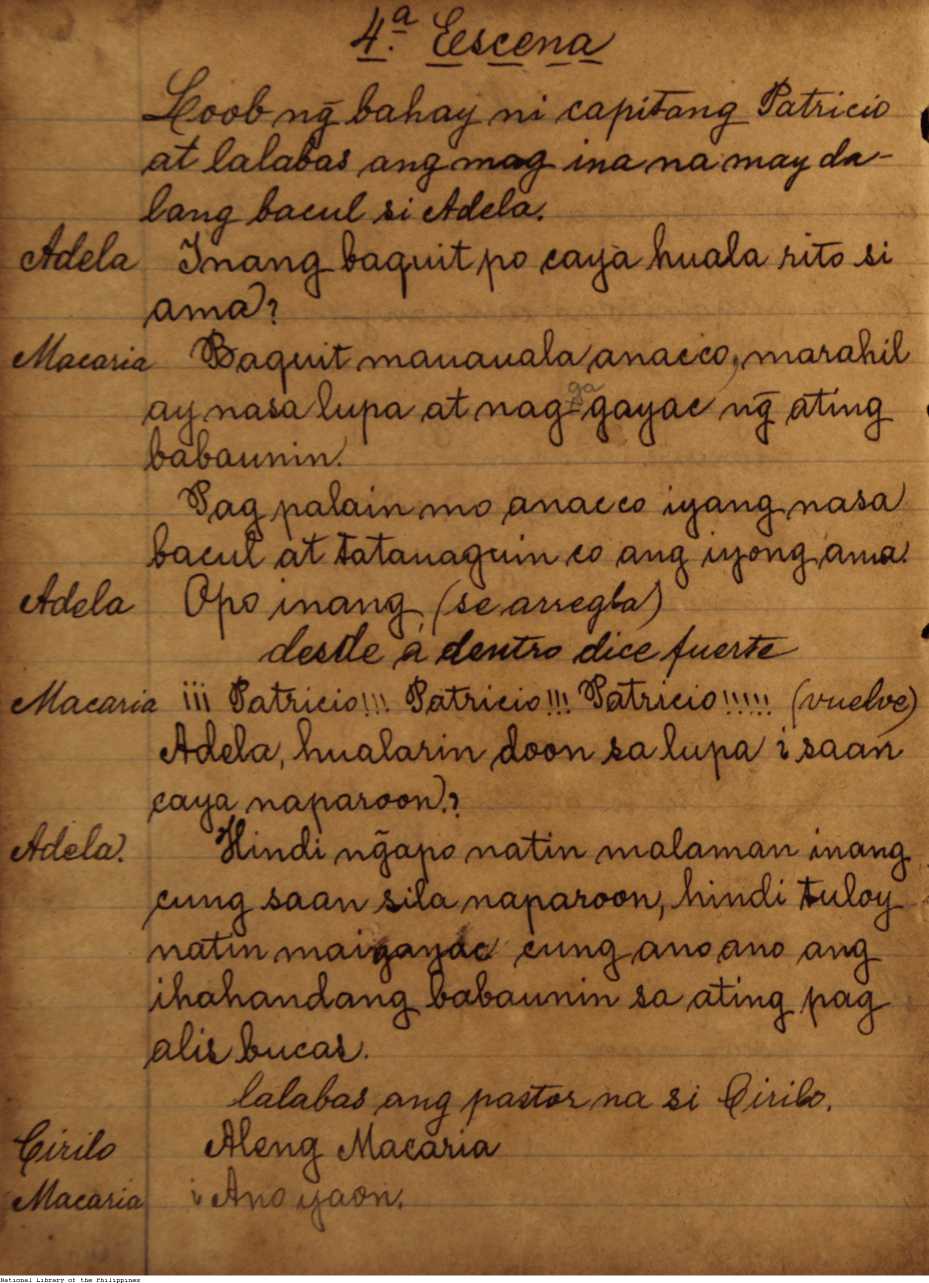 4.ª Escena
Loob ng̃ bahay ni capitang Patricio
at lalabas ang mag ina na may da-
lang bacul si Adela.
Adela Inang baquit po caya huala rito si
ama?
Macaria Baquit mauauala anac co, marahil
ay nasa lupa at nag ga gayac ng̃ ating
babaunin.
Pag palain mo anac co iyang nasa
bacul at tatauaguin co ang iyong ama.
Adela Opo inang (se arregla)
desde á dentro dice fuerte
Macaria ¡¡¡ Patricio!!! Patricio!!! Patricio!!!!! (vuelve)
Adela, hualarin doon sa lupa ¿ saan
caya naparoon?
Adela. Hindi ng̃a po natin malaman inang
cung saan sila naparoon, hindi tuloy
natin maigayac cung ano ano ang
ihahandang babaunin sa ating pag
alis bucas.
lalabas ang pastor na si Cirilo.
Cirilo Aleng Macaria
Macaria ¿ Ano yaon.
National Library of the Philippines